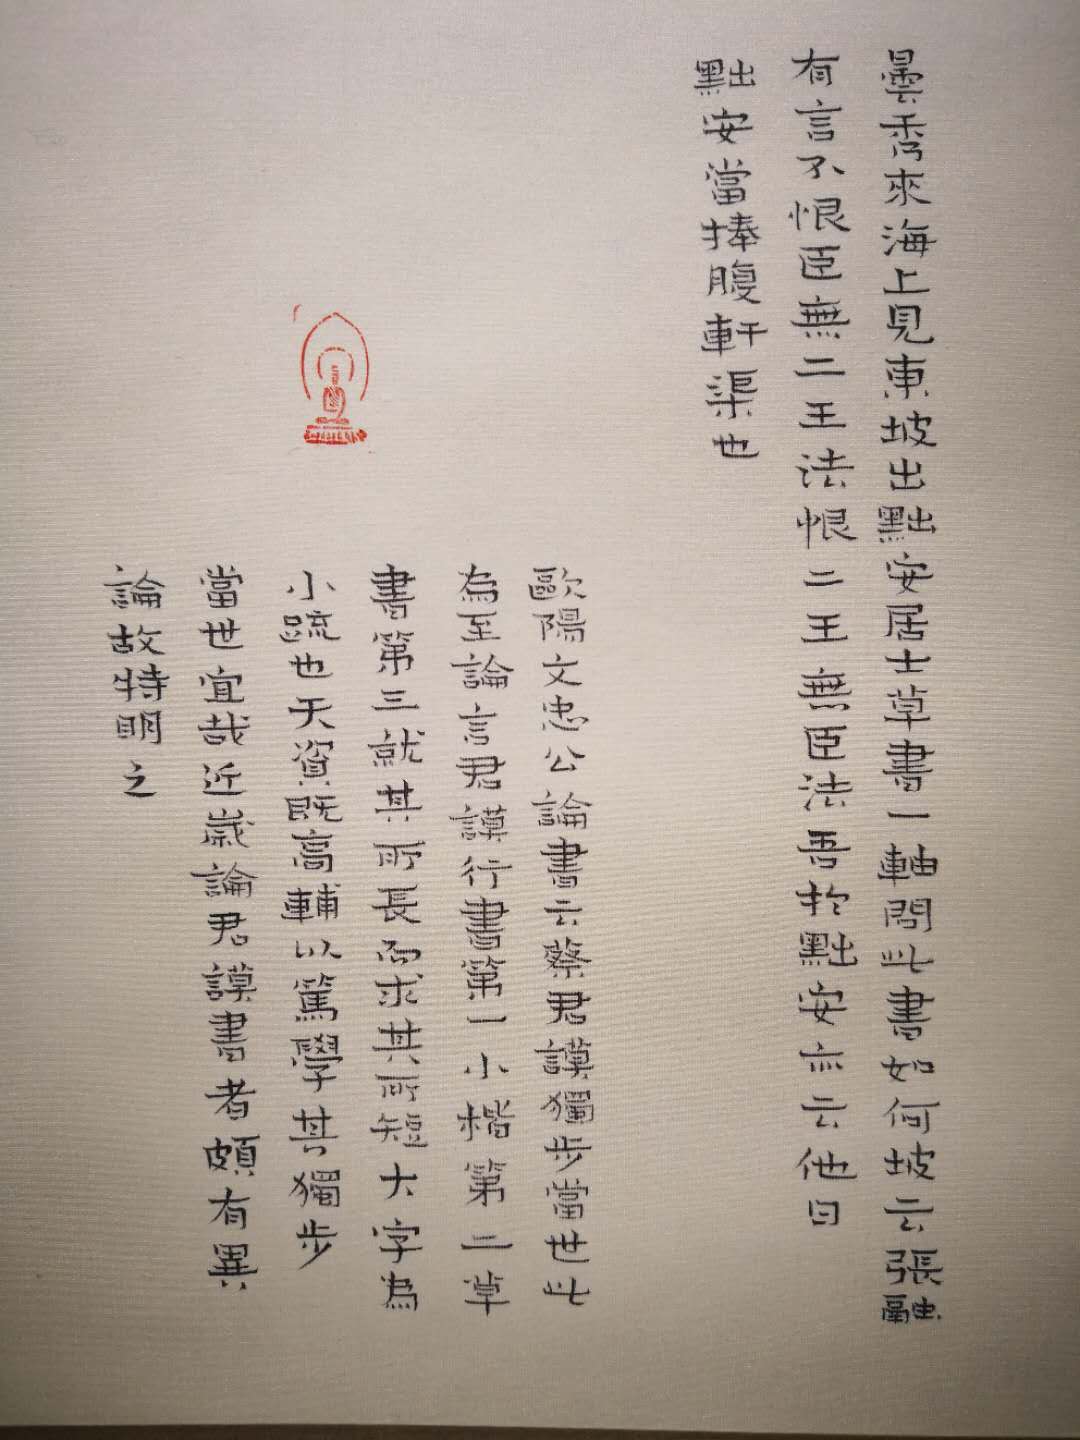 曇秀來海上見東坡出黜安居士草書一軸問此書如何坡云張融
有言不恨臣無二王法恨二王無臣法吾於黜安亦云他日
黜安當捧腹軒渠也
歐陽文忠公論書云蔡君謨獨步當世此
為至論言君謨行書第一小楷第二草
書第三就其所長而求其所短大字為
小疏也天資既高輔以篤學其獨步
當世宜哉近歲論君謨書者頗有異
論故特明之